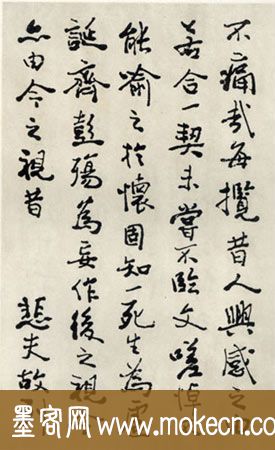 不痛哉每攬昔人興感之
若合一契未嘗不臨文嗟悼
能喻之於懷固知一死生為虛
誕齊彭殤為妄作後之視
亦由今之視昔 悲夫故列
墨客网 www.mokecn.com